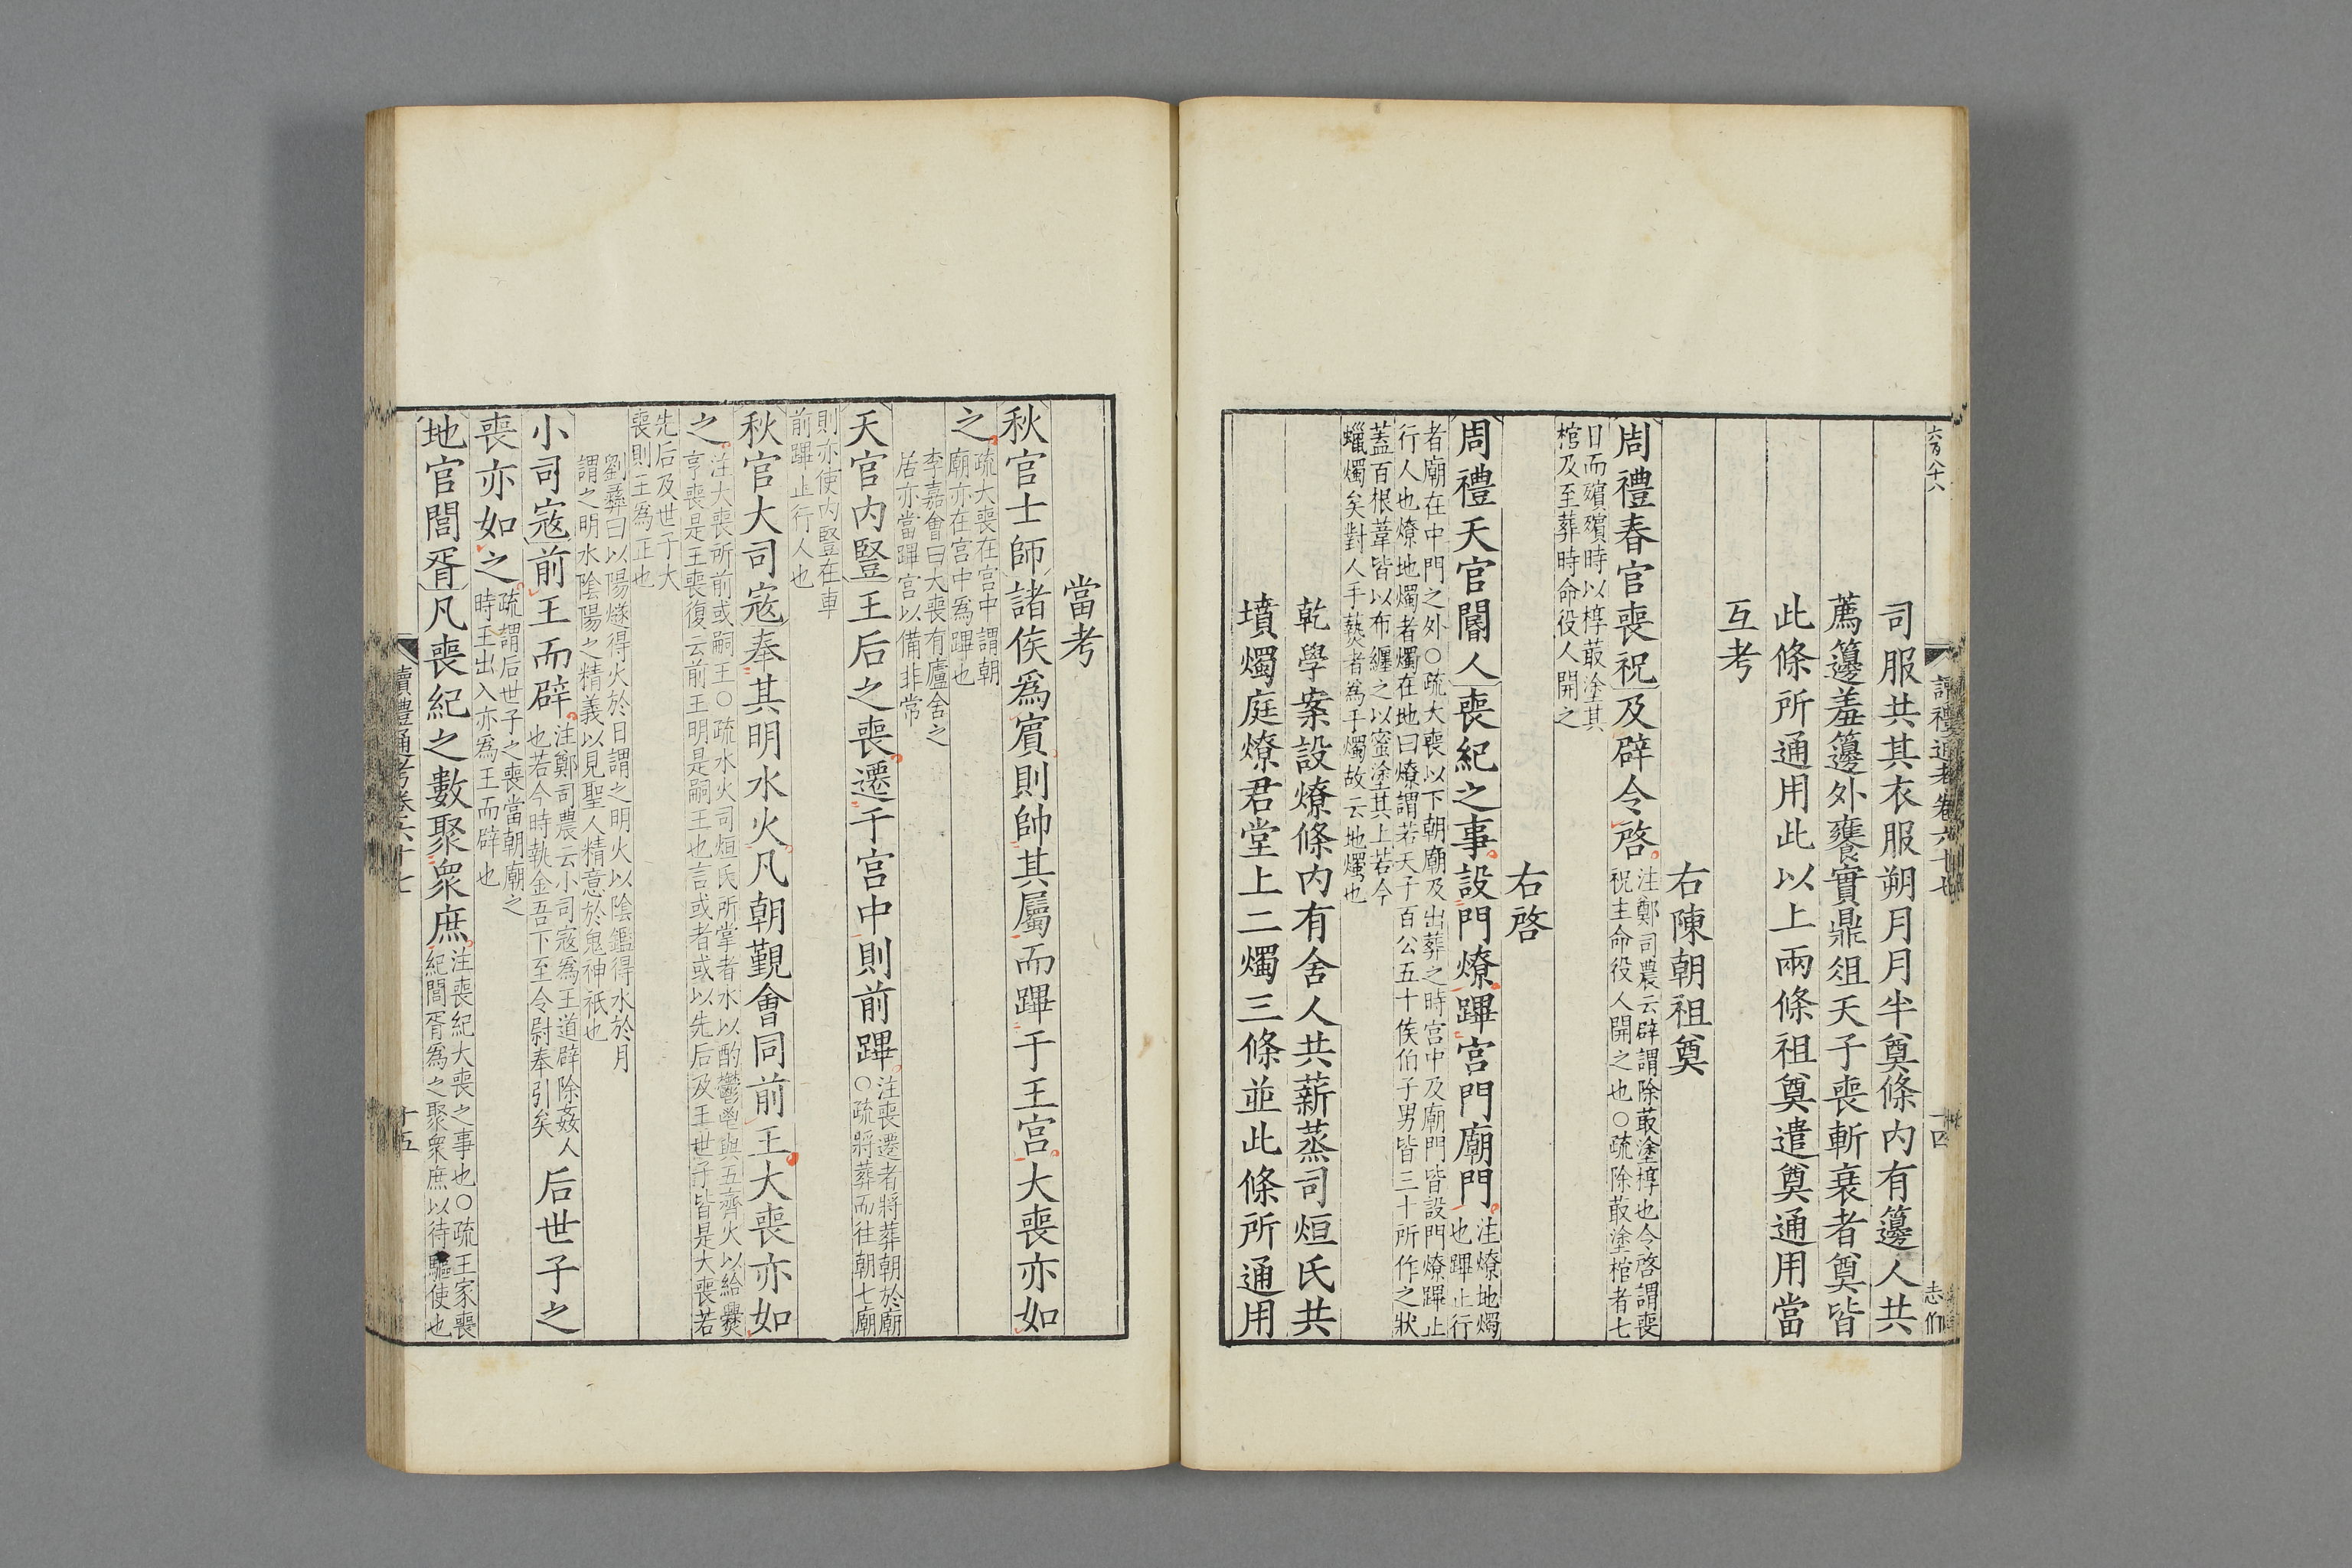 六百八十八
讀禮通考卷六十七
十四
志作
司服共其衣服朔月月半奠條內有籩人共
薦籩羞籩外饔實鼎俎天子喪斬衰者奠皆
此條所通用此以上兩條祖奠遣奠通用當
互考
右陳朝祖奠
周禮春官喪祝及辟令啓注鄭司農云辟謂除菆塗椁也令啓謂喪
祝主命役人開之也○疏除菆塗棺者七
日而殯殯時以椁菆塗其
棺及至葬時命役人開之
右啓
周禮天官閽人喪紀之事設門燎蹕宮門廟門注燎地燭
也蹕止行
者廟在中門之外○疏大喪以下朝廟及出葬之時宮中及廟門皆設門燎蹕止
行人也燎地燭者燭在地曰燎謂若天子百公五十侯伯子男皆三十所作之狀
蓋百根葦皆以布纏之以蜜塗其上若今
蠟燭矣對人手爇者爲手燭故云地燭也
乾學案設燎條內有舍人共薪蒸司烜氏共
墳燭庭燎君堂上二燭三條並此條所通用
當考
秋官士師諸侯爲賓則帥其屬而蹕于王宮大喪亦如
之疏大喪在宮中謂朝
廟亦在宮中爲蹕也
李嘉會曰大喪有廬舍之
居亦當蹕宮以備非常
天官內豎王后之喪遷于宮中則前蹕注喪遷者將葬朝於廟
○疏將葬而往朝七廟
則亦使內豎在車
前蹕止行人也
秋官大司寇奉其明水火凡朝覲會同前王大喪亦如
之注大喪所前或嗣王○疏水火司烜氏所掌者水以酌鬱鬯與五齊火以給爨
亨喪是王喪復云前王明是嗣王也言或者或以先后及王世子皆是大喪若
先后及世子大
喪則王爲正也
劉彝曰以陽燧得火於日謂之明火以陰鑑得水於月
謂之明水陰陽之精義以見聖人精意於鬼神祇也
小司寇前王而辟注鄭司農云小司寇爲王道辟除姦人
也若今時執金吾下至令尉奉引矣
后世子之
喪亦如之疏謂后世子之喪當朝廟之
時王出入亦爲王而辟也
地官閭胥凡喪紀之數聚衆庶注喪紀大喪之事也○疏王家喪
紀閭胥爲之聚衆庶以待驅使也
讀禮通考卷六十七
十五